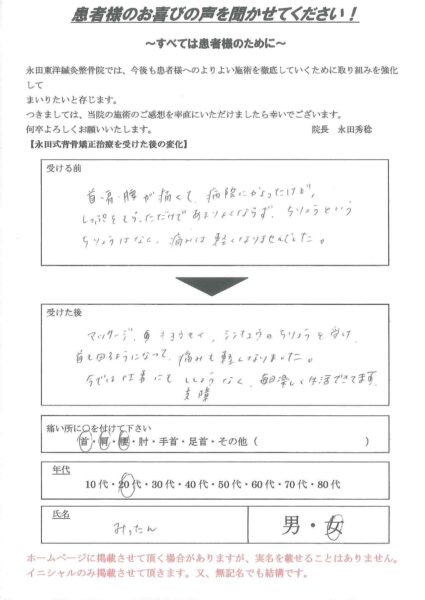 患者様のお喜びの声を聞かせてください！
～すべては患者様のために～
永田東洋鍼灸整骨院では、今後も患者様へのよりよい施術を徹底していくために取り組みを強化
して
まいりたいと存じます。
つきましては、当院の施術のご感想を率直にいただけましたら幸いでございます。
何卒よろしくお願いいたします。 院長 永田秀稔
【永田式背骨矯正治療を受けた後の変化】
受ける前
首・肩・腰が痛くて、病院にかよったけど、
しっぷをもらっただけであまりよくならず、ちりょうという
ちりょうはなく、痛みは軽くなりませんでした。
受けた後
マッサージ、骨キョウセイ、シンキュウのちりょうを受け、
首も回るようになって、痛みも軽くなりました。
今では仕事にもししょうなく、毎日楽しく生活できてます。
支障
痛い所に○を付けて下さい
首・肩・腰・肘・手首・足首・その他（ ）
年代
10代・20代・30代・40代・50代・60代・70代・80代
氏名
みったん 男・女
ホームページに掲載させて頂く場合がありますが、実名を載せることはありません。
イニシャルのみ掲載させて頂きます。又、無記名でも結構です。